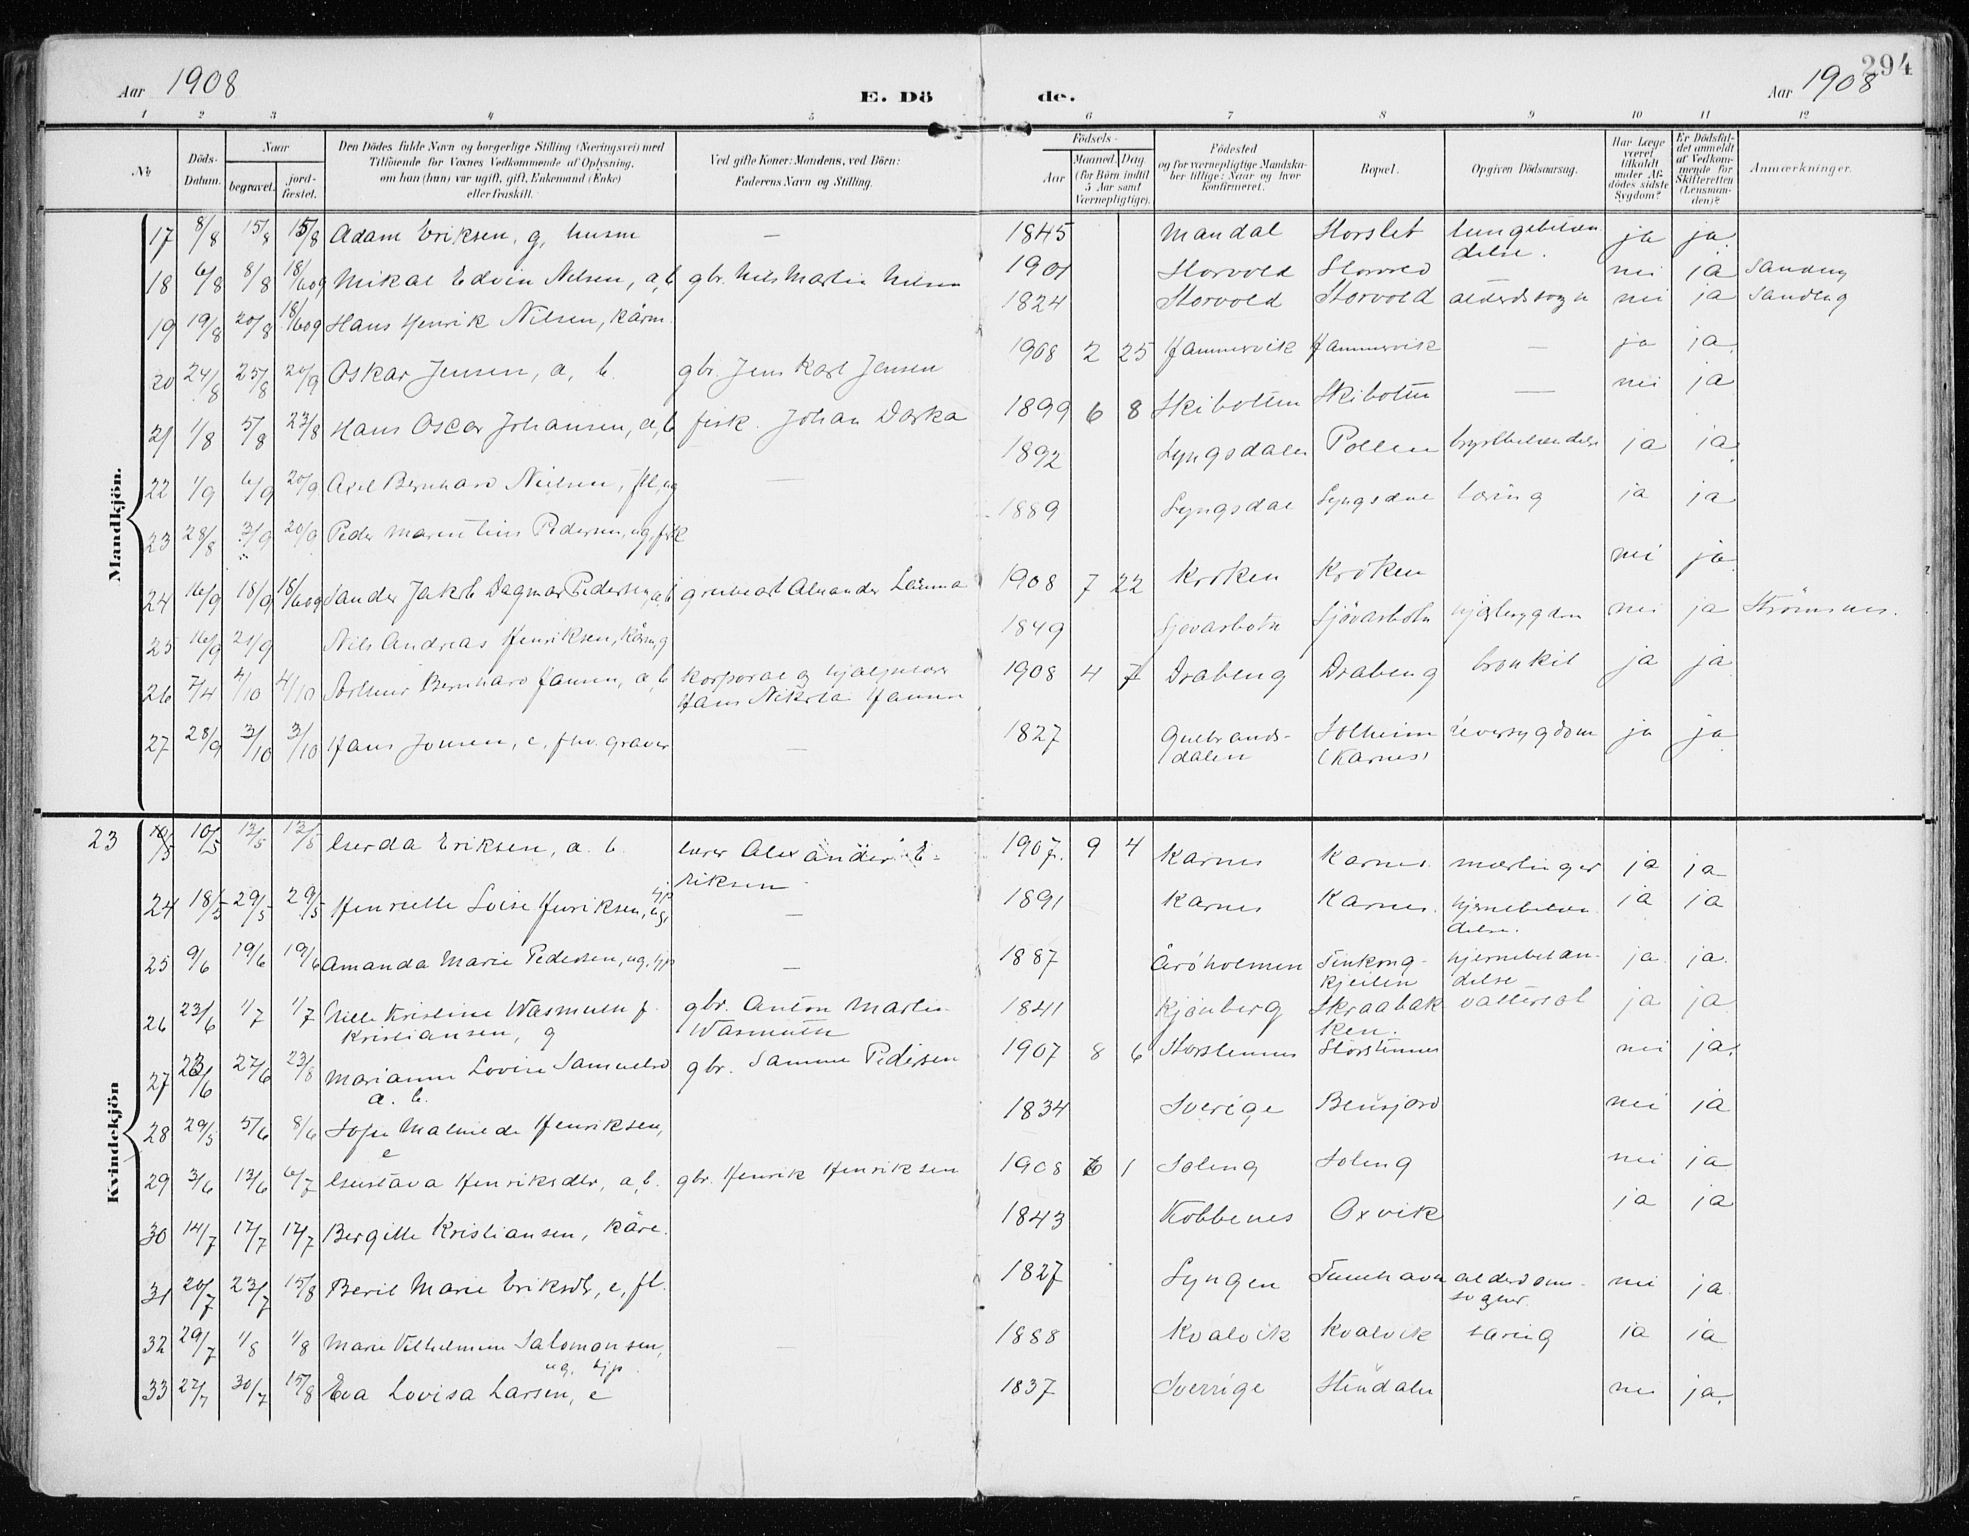 294
Aar 1908
E. Dö
de.
Aar 1908
1 2 3 4 5 6 7 8 9 10 11 12
No
Döds-
Datum.
Naar
begravet.
jord-
fæstet.
Den Dödes fulde Navn og borgerlige Stilling (Næringsvei) med
Tilföiende for Voxnes Vedkommende af Oplysning,
om han (hun) var ugift, gift, Enkemand (Enke)
eller fraskilt.
Ved gifte Koner: Mandens, ved Börn:
Faderens Navn og Stilling.
Födsels-
Aar
Maaned. Dag.
(for Börn indtil
5 Aar samt
Værnepligtige).
Födested
og for værnepligtige Mandska-
ber tillige: Naar og hvor
konfirmeret.
Bopæl.
Opgiven Dödsaarsag.
Har Læge
været
tilkaldt
under Af-
dödes sidste
Sygdom?
Er Dödsfal-
det anmeldt
af Vedkom-
mende for
Skifteretten
(Lensman-
den)?
Anmærkninger.
Mandkjön.
17 8/8 15/8 15/8 Adam Eriksen, g, husm — 1845 Mandal Horslet lungebetæn ja ja
delse.
18 6/8 8/8 18/6 09 Mikal Edvin Nilsen, a, b gbr. Nils Martin Nilsen 1901 Storvold Storvold nei ja Sandeng
19 19/8 20/8 18/6 09 Hans Henrik Nilsen, kårm. 1824 Storvold Storvold nei ja Sandeng
20 24/8 25/8 20/9 Oskar Jensen, a, b. gbr. Jens Karl Jensen 1908 2 25 Hammervik Hammervik — ja ja.
21 1/8 5/8 23/8 Hans Oscar Johansen, a, b fisk. Johan Darka 1899 6 8 Skibotten Skibotten — nei ja
22 1/9 6/9 20/9 Axel Bernhard Nilsen, fl, ug — 1892 Lyngsdalen Pollen brystbetændelse ja ja.
23 28/8 3/9 20/9 Peder Marentius Pedersen, ug, fisk 1889 Lyngsdal Lyngsdal tæring ja ja
24 16/9 18/9 18/6 09 Sander Jakob Dagmar Pedersen, a, b grubearb Alexander 1908 7 22 Kroken Kroken nei ja
25 16/9 21/9 Nils Andreas Henriksen, kårm, g 1849 Sjøvasbotn Sjøvasbotn nei ja Strömsnes.
26 7/4 4/10 4/10 Bernhard Hansen, a, b Korporal og hjælpelærer 1908 4 7 Drabeng Drabeng bronkit ja ja
Hans Nikolai Hansen
27 28/9 3/10 3/10 Hans Jonsen, e, fhv. graver — 1827 Gulbrands- Solheim leversygdom ja ja
dalen (Karnes)
Kvindekjön
23 10/5 10/5 12/5 12/5 Gerda Eriksen, a. b. lærer Alexander E- 1907. 9 4 Karnes Karnes. mæslinger ja ja
riksen
24 18/5 29/5 29/5 Henriette Lovise Henriksen, tjp ug. — 1891 Karnes Karnes. hjernebetæn ja ja
delse.
25 9/6 19/6 19/6 Amanda Marie Pedersen, ug. tjp — 1887 Årøholmen Finkrog- hjernebetæn- ja. ja.
kjeilen delse
26 23/6 1/7 1/7 Kristine Wasmuth f. gbr. Anton Martin 1841 Kjønberg Skraabak vattersot ja ja
Kristiansen, g Wasmuth ken.
27 23/6 27/6 23/8 Marianne Lovise Samuelsd gbr. Pedersen 1907 8 6 Storstennes Storstennes nei ja.
a. b.
28 29/5 5/6 8/6 Sofie Mathilde Henriksen, 1834 Sverige Bensjord nei ja
e
29 3/6 13/6 6/7 Gustava Henriksdtr, a, b. gbr. Henrik Henriksen 1908 6 1 Soleng Soleng nei ja
30 14/7 17/7 17/7 Bergitte Kristiansen, kåre. 1843 Kobbenes Oxvik ja ja
31 20/7 23/7 15/8 Berit Marie Eriksdtr, e, fl. 1827 Lyngen alderdoms- nei ja
32 29/7 1/8 1/8 Marie Vilhelmine Salomonsen, — 1888 Kvalvik Kvalvik tæring ja ja
ug. tjp.
33 27/7 30/7 15/8 Eva Lovisa Larsen, e 1837 Sverrige Stendalen nei ja.